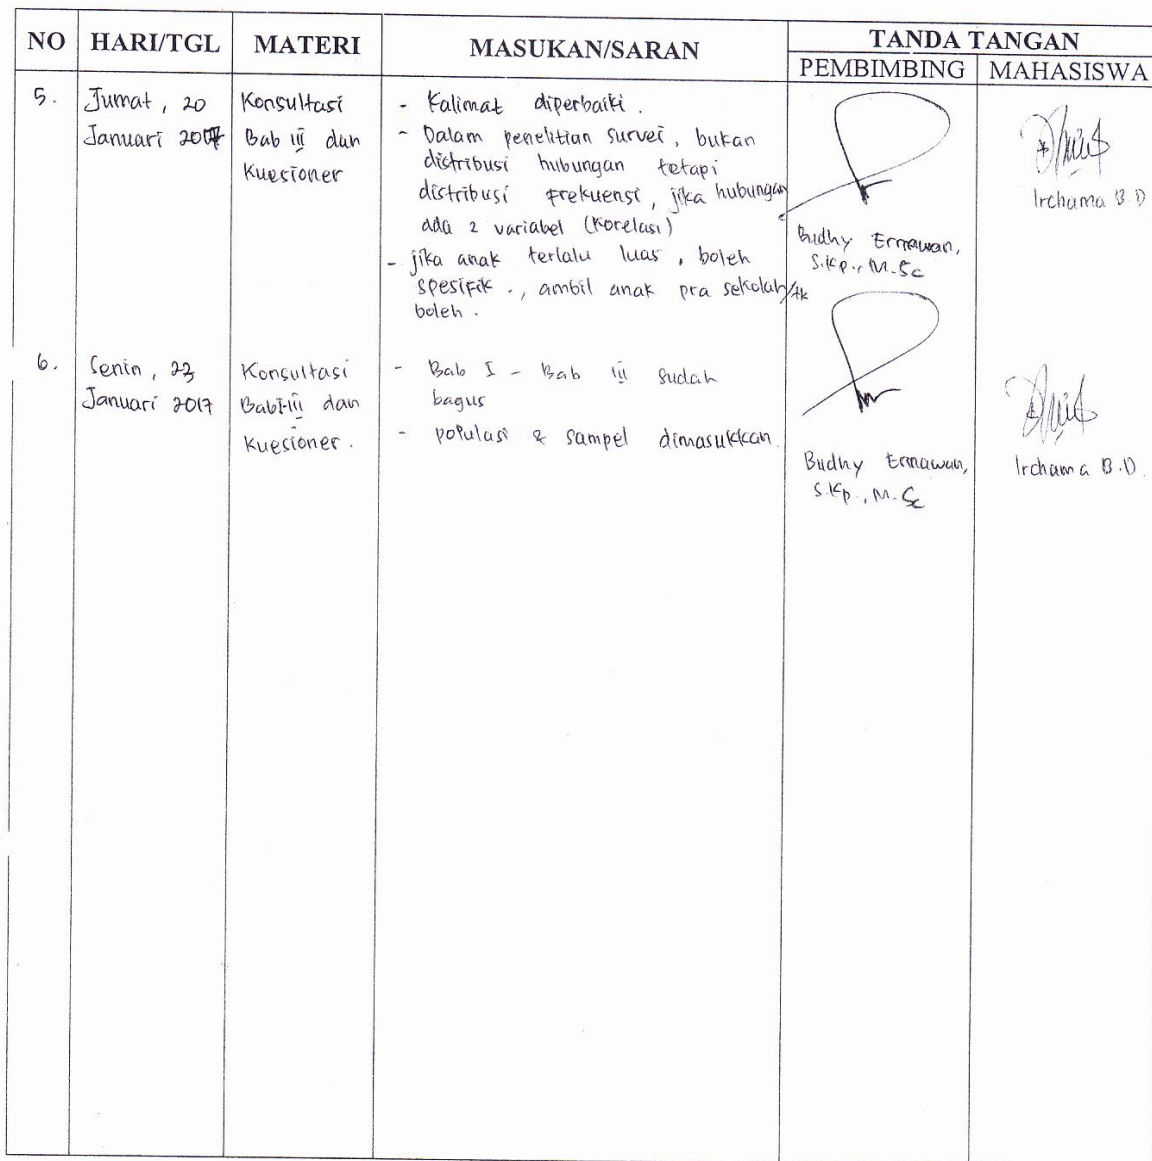 NO HARI/TGL MATERI MASUKAN/SARAN TANDA TANGAN
PEMBIMBING MAHASISWA
5. Jumat, 20
Januari 2017
Konsultasi
Bab III dan
Kuesioner
- Kalimat diperbaiki.
- Dalam penelitian survei, bukan
distribusi hubungan tetapi
distribusi Frekuensi, jika hubungan
ada 2 variabel (Korelasi)
- jika anak terlalu luas, boleh
spesifik., ambil anak pra sekolah/tk
boleh.
Budhy Ermawan,
S.Kp., M.Sc
Irchama B.D
6. Senin, 23
Januari 2017
Konsultasi
Bab I-III dan
Kuesioner.
- Bab I - Bab III sudah
bagus
- populasi & sampel dimasukkan.
Budhy Ermawan,
S.Kp., M.Sc
Irchama B.D.